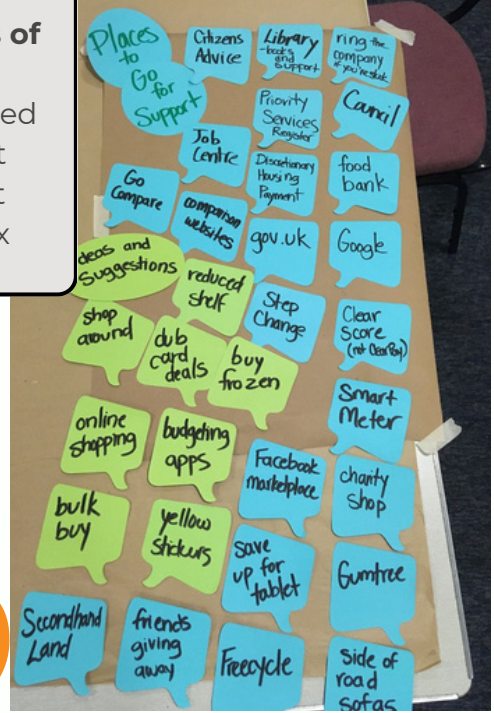 s of
ed
t
t
x
Places
to
Go
for
Support
Citizens
Advice
Library
-books
and
support
ring the
company
if you're stuck
Priority
Services
Register
Council
Job
Centre
Discretionary
Housing
Payment
food
bank
Go
Compare
comparison
websites
gov.uk
Google
deas and
Suggestions
reduced
shelf
Step
Change
Clear
Score
(not ClearPay)
shop
around
club
card
deals
buy
frozen
Smart
Meter
online
shopping
budgeting
apps
Facebook
marketplace
charity
shop
bulk
buy
yellow
stickers
save
up for
tablet
Gumtree
Secondhand
Land
friends
giving
away
Freecycle
Side of
road
sofas